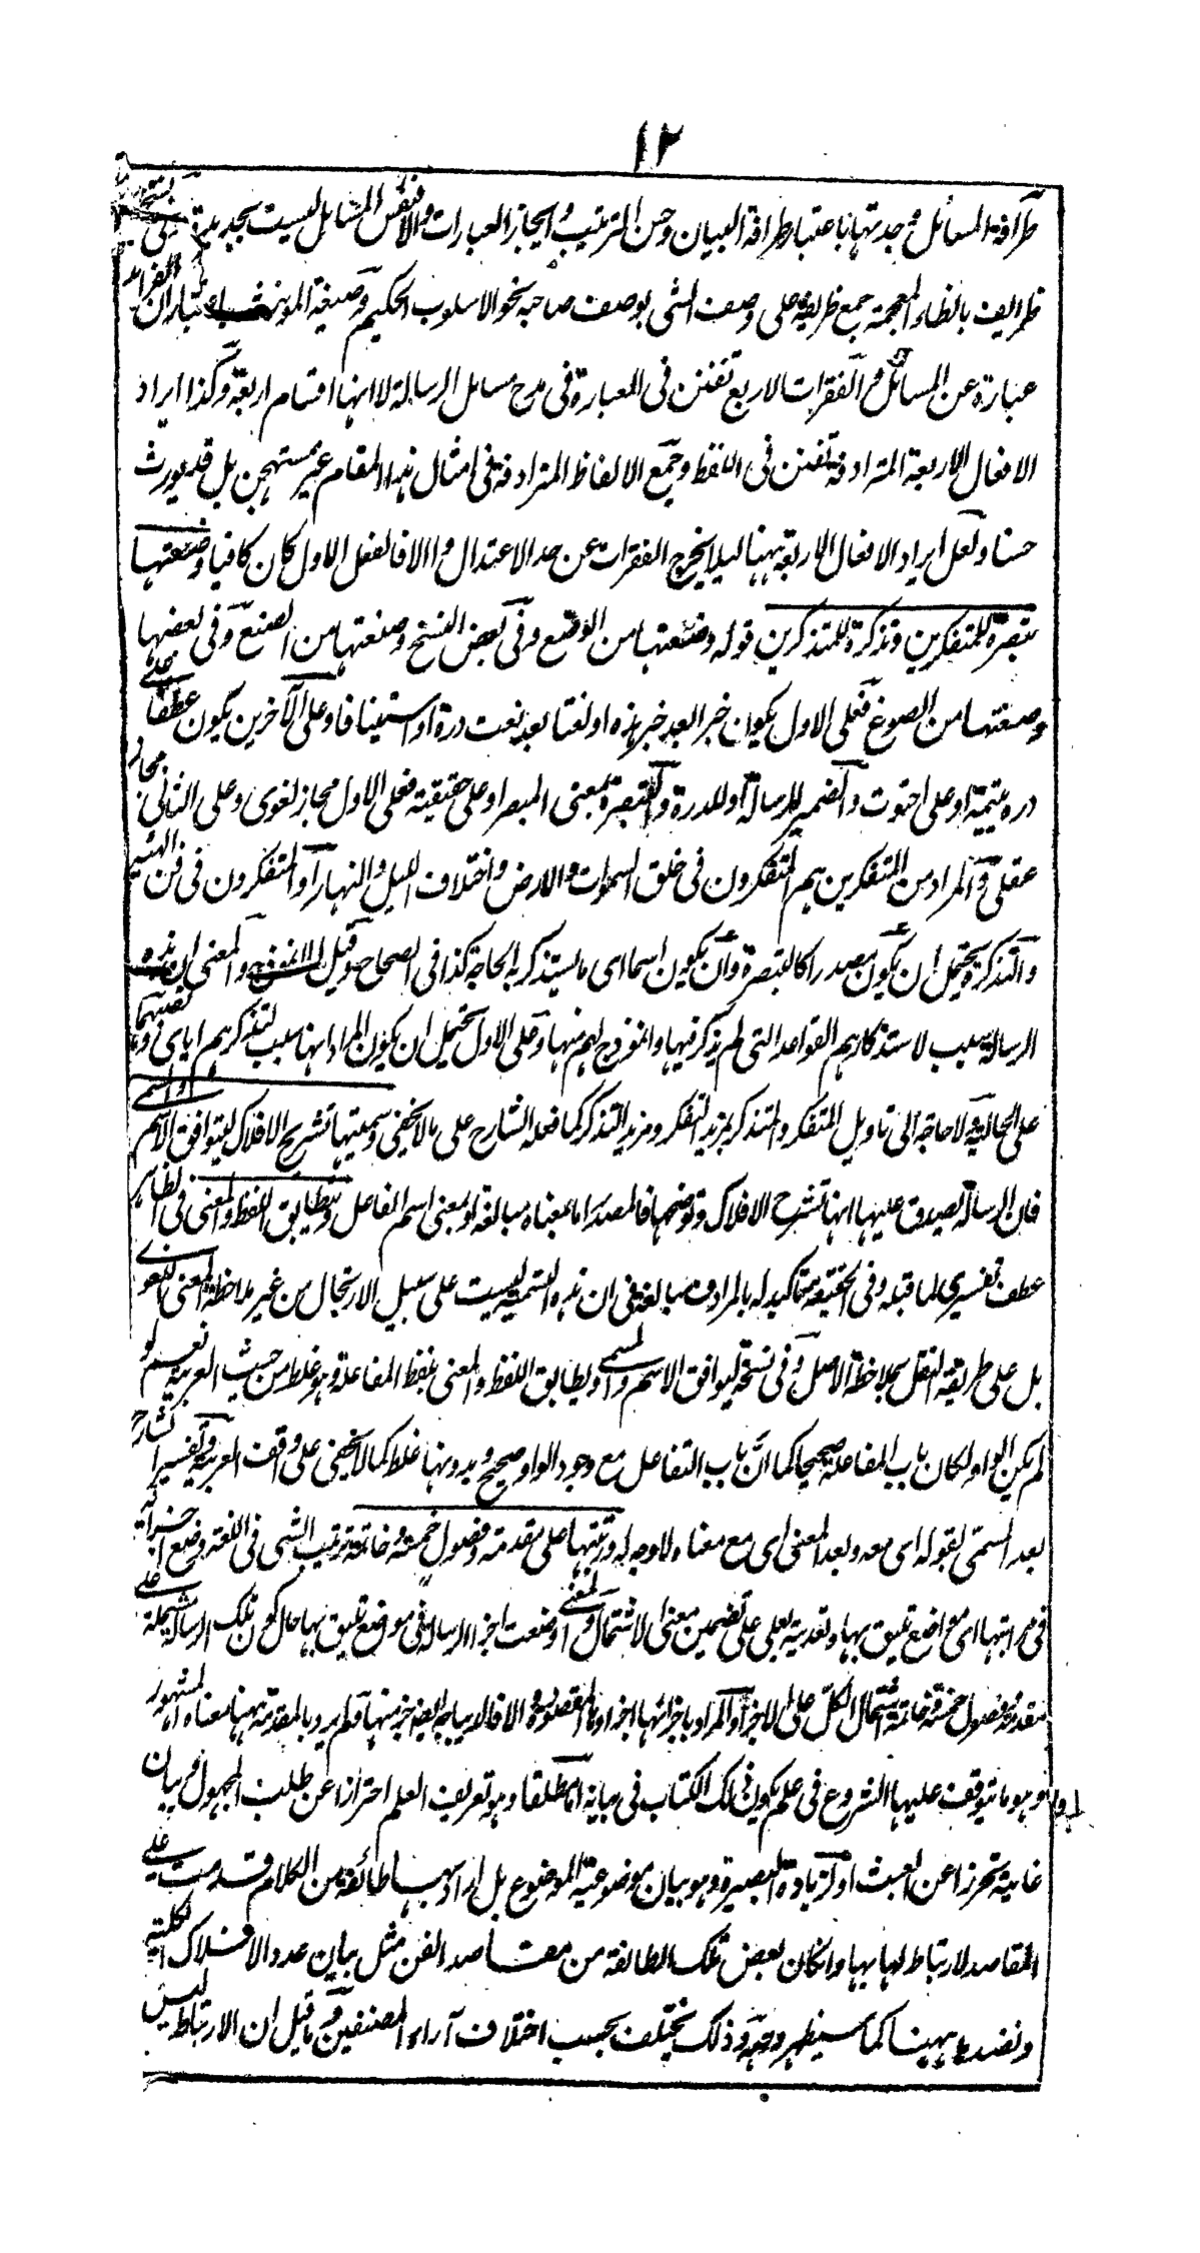 ١٢
طرافة المسائل وجدتها باعتبار طرافة البيان وحسن الترتيب وايجاز العبارات والا فنفس المسائل ليست بجديدة
ظرايف بالظاء المعجمة جمع ظريفة على وصف الشى بوصف صاحبه نحو الاسلوب الحكيم وصيغة المونث باعتبار ان الفرائد
عبارة عن المسائل والفقرات الاربع تفنن فى العبارة فى مدح مسائل الرسالة لا انها اقسام اربعة وكذا ايراد
الافعال الاربعة المترادفة تفنن فى اللفظ وجمع الالفاظ المترادفة فى امثال هذا المقام غير مستهجن بل قد يورث
حسنا ولعل ايراد الافعال الاربعة ههنا ليلا يخرج الفقرات عن حد الاعتدال والا فالفعل الاول كان كافيا وضعتها
تبصرة للمتفكرين وتذكرة للمتذكرين قوله وضعتها من الوضع وفى بعض النسخ وصنعتها من الصنع وفى بعضها
وصغتها من الصوغ فعلى الاول يكون خبرا بعد خبر لهذه او نعتا بعد نعت درة او استينافا وعلى الآخرين يكون عطفا على
درة يتيمة او على اخوت والضمير للرسالة او للدرة والتبصرة بمعنى المبصر او على حقيقته فعلى الاول مجاز لغوى وعلى الثانى مجاز
عقلى والمراد من المتفكرين هم المتفكرون فى خلق السموات والارض واختلاف الليل والنهار او المتفكرون فى فن الهيئة
والتذكرة يحتمل ان يكون مصدرا كالتبصرة وان يكون اسما اى ما يستذكر به الحاجة كذا فى الصحاح وقيل الانموذج والمعنى ان هذه
الرسالة سبب لاستذكارهم القواعد التى لم يذكر فيها وانموذج لهم منها وعلى الاول يحتمل ان يكون المراد انها سبب لتذكرهم اياى ونصبهما
على الحالية ولا حاجة الى تاويل المتفكر والمتذكر بمزيد التفكر ومزيد التذكر كما فعله الشارح على ما لا يخفى وسميتها تشريح الافلاك ليتوافق الاسم والمسمى
فان الرسالة يصدق عليها انها تشرح الافلاك وتوضحها فالمصدر اما بمعناه مبالغة او بمعنى اسم الفاعل ويتطابق اللفظ والمعنى فى الظاهر
عطف تفسيرى لما قبله وفى الحقيقة تاكيد له بالمرادف مبالغة فى ان هذه التسمية ليست على سبيل الارتجال من غير ملاحظة المعنى اللغوى
بل على طريقة النقل بملاحظة الاصل وفى نسخة ليوافق الاسم والمسمى ويطابق اللفظ والمعنى بلفظ المفاعلة وهو غلط من حيث العربية نعم لو
لم يكن الواو لكان باب المفاعلة صحيحا كما ان باب التفاعل مع وجود الواو صحيح وبدونها غلط كما لا يخفى على واقف العربية وتفسير الشارح
بعد المسمى بقوله اى معه وبعد المعنى اى مع معناه لا وجه له ورتبتها على مقدمة وفصول خمسة وخاتمة ترتيب الشى فى اللغة وضع اجزائه
فى مراتبها اى مواضع تليق بها وتعديته بعلى على تضمين معنى الاشتمال والمعنى وضعت اجزاء الرسالة فى موضع تليق بها حال كون تلك الرسالة مشتملة على
مقدمة وفصول خمسة وخاتمة اشتمال الكل على الاجزاء والمراد باجزائها اجزاؤها المقصودة والا فالديباجة ايضا جزء منها ولم يرد بالمقدمة ههنا معناه المشهور
وهو ما يتوقف عليها الشروع فى علم يكون ذلك الكتاب فى بيانه اما مطلقا وهو تعريف العلم احترازا عن طلب المجهول وبيان
غايته تحرزا عن العبث او لزيادة البصيرة وهو بيان موضوعية الموضوع بل اراد بها طائفة من الكلام قدمت على
المقاصد لارتباط لها بها وان كان بعض تلك الطائفة من مقاصد الفن مثل بيان عدد الافلاك الكلية
ونضدها ههنا كما سيظهر وجهه وذلك يختلف بحسب اختلاف آراء المصنفين وما قيل ان الارتباط ليس